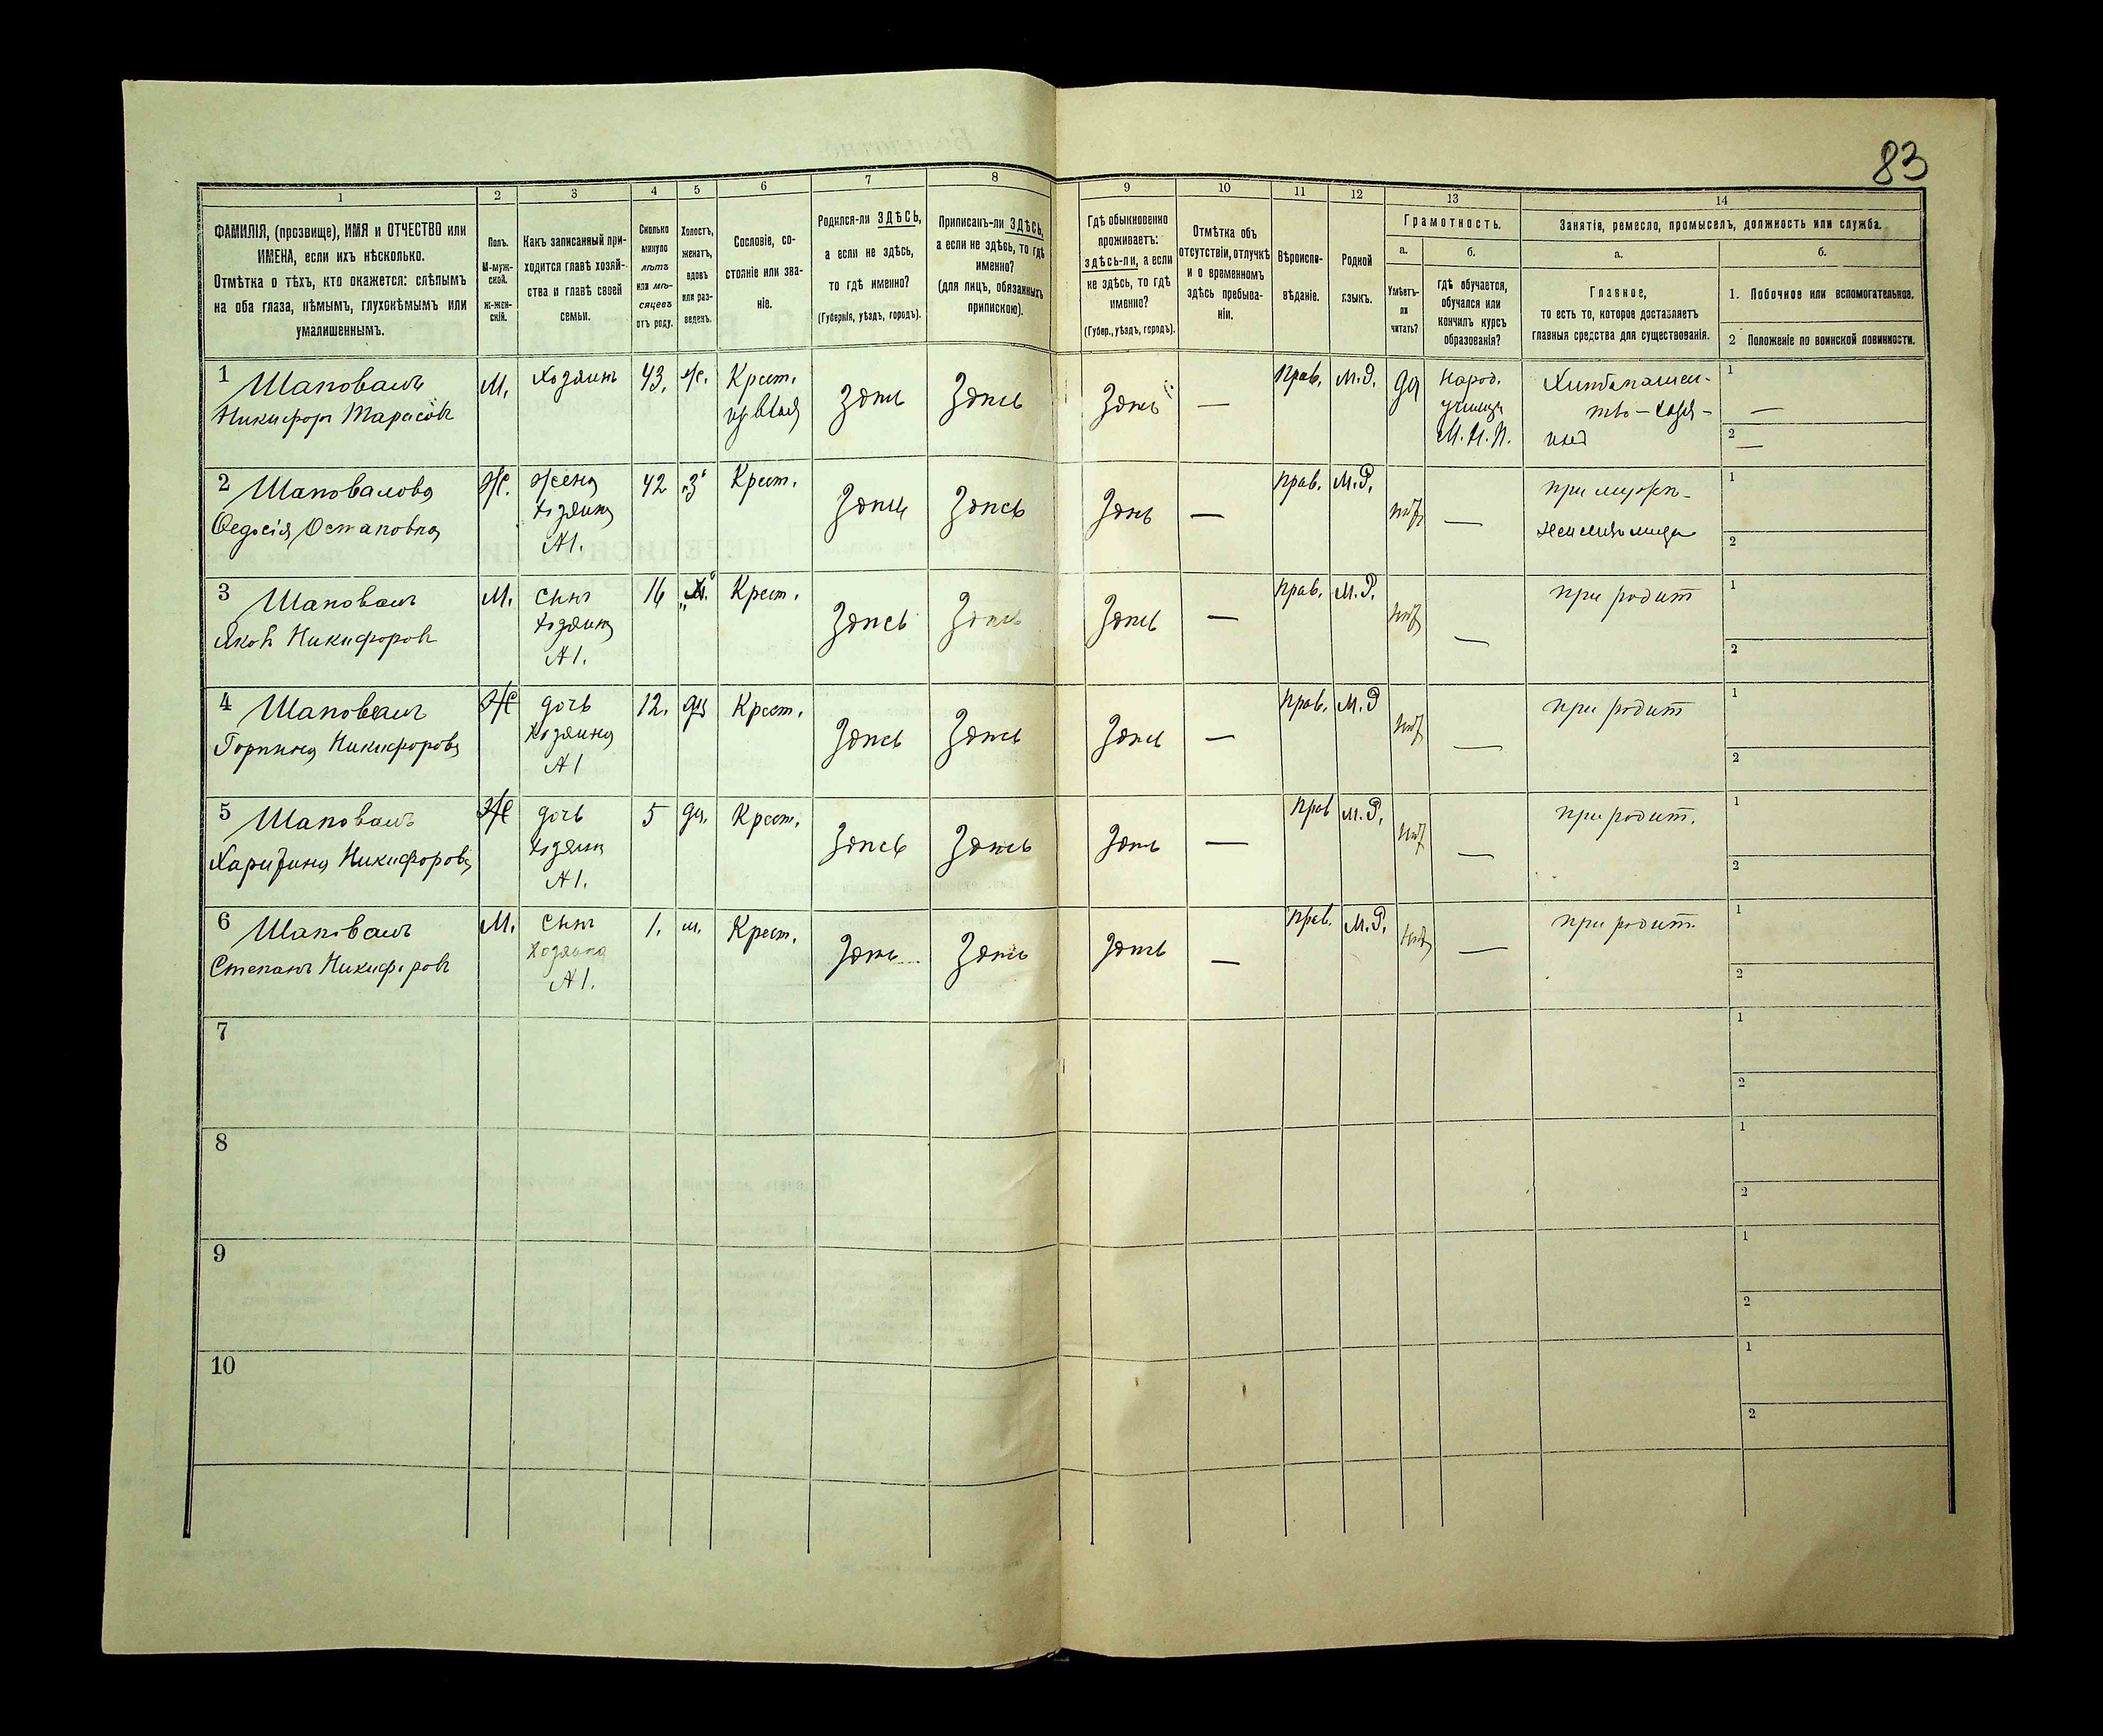 83
1
2
3
4
5
6
7
8
9
10
11
12
13
14
ФАМИЛІЯ, (прозвище), ИМЯ и ОТЧЕСТВО или
ИМЕНА, если ихъ нѣсколько.
Отмѣтка о тѣхъ, кто окажется: слѣпымъ
на оба глаза, нѣмымъ, глухонѣмымъ или
умалишеннымъ.
Полъ.
М-муж-
ской.
Ж-жен-
скій.
Какъ записанный при-
ходится главѣ хозяй-
ства и главѣ своей
семьи.
Сколько
минуло
лѣтъ
или мѣ-
сяцевъ
отъ роду.
Холостъ,
женатъ,
вдовъ
или раз-
веденъ.
Сословіе, со-
стояніе или зва-
ніе.
Родился-ли ЗДѢСЬ,
а если не здѣсь,
то гдѣ именно?
(Губернія, уѣздъ, городъ).
Приписанъ-ли ЗДѢСЬ,
а если не здѣсь, то гдѣ
именно?
(для лицъ, обязанныхъ
припискою).
Гдѣ обыкновенно
проживаетъ:
здѣсь-ли, а если
не здѣсь, то гдѣ
именно?
(Губер., уѣздъ, городъ).
Отмѣтка объ
отсутствіи, отлучкѣ
и о временномъ
здѣсь пребыва-
ніи.
Вѣроиспо-
вѣданіе.
Родной
языкъ.
Грамотность.
а.
Умѣетъ-
ли
читать?
б.
гдѣ обучается,
обучался или
кончилъ курсъ
образованія?
Занятіе, ремесло, промыселъ, должность или служба.
а.
Главное,
то есть то, которое доставляетъ
главныя средства для существованія.
б.
1. Побочное или вспомогательное.
2 Положеніе по воинской повинности.
1 Шаповалъ
Никифоръ Тарасовъ
М.
Хозяинъ
43.
ж.
Крест.
Здѣсь
Здѣсь
Здѣсь
—
Прав.
М.Р.
да
Народ.
училищ
М.Н.П.
Хлѣбопашес-
тво — хозя-
инъ
1
—
2
—
2 Шаповалова
Ѳедосія Остаповна
Ж.
жена
хозяина
№1.
42
з
Крест.
Здѣсь
Здѣсь
Здѣсь
—
Прав.
М.Р.
нѣт
—
при мужѣ-
1
2
3 Шаповалъ
Яковъ Никифоровъ
М.
Сынъ
хозяина
№1.
16
х.
Крест.
Здѣсь
Здѣсь
Здѣсь
—
Прав.
М.Р.
нѣт
—
при родит
1
2
4 Шаповалъ
Горпина Никифорова
Ж
дочь
хозяина
№1
12.
дѣ
Крест.
Здѣсь
Здѣсь
Здѣсь
—
Прав.
М.Р
нѣт
—
при родит
1
2
5 Шаповалъ
Харитина Никифорова
Ж
дочь
хозяина
№1.
5
дѣ.
Крест.
Здѣсь
Здѣсь
Здѣсь
—
Прав
М.Р.
нѣт
—
при родит.
1
2
6 Шаповалъ
Степанъ Никифоровъ
М.
Сынъ
хозяина
№1.
1.
м.
Крест.
Здѣсь
Здѣсь
Здѣсь
—
Прав.
М.Р.
нѣт
—
при родит.
1
2
7
1
2
8
1
2
9
1
2
10
1
2